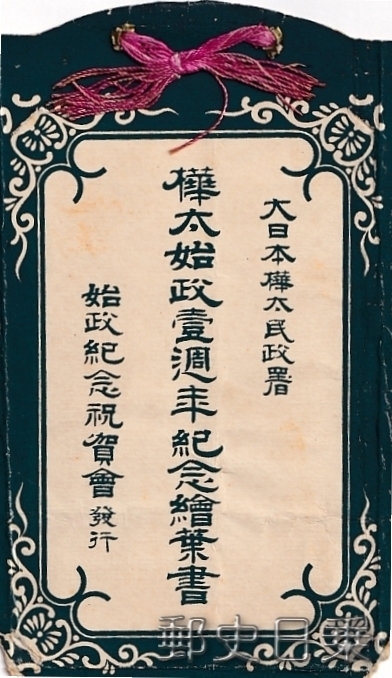 大日本樺太民政署
樺太始政壹週年紀念繪葉書
始政紀念祝賀會發行
郵史日乗